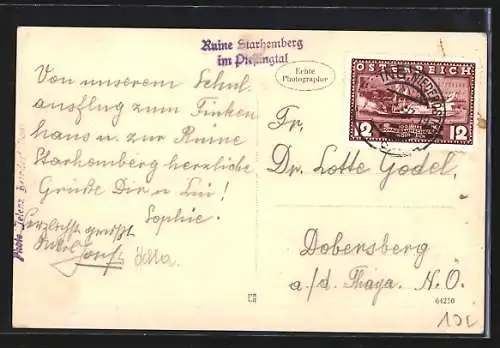 Ruine Starhemberg
im Piestingtal
Echte
Photographie
ÖSTERREICH
12 12
Von unserem Schul
ausflug zum Finken
haus u. zur Ruine
Starhemberg herzliche
Grüße Dir u. Lui!
Sophie.
Herzlichst grüßt
Fr.
Dr. Lotte Godel,
Dobersberg
a/d. Thaya. N.Ö.
64250